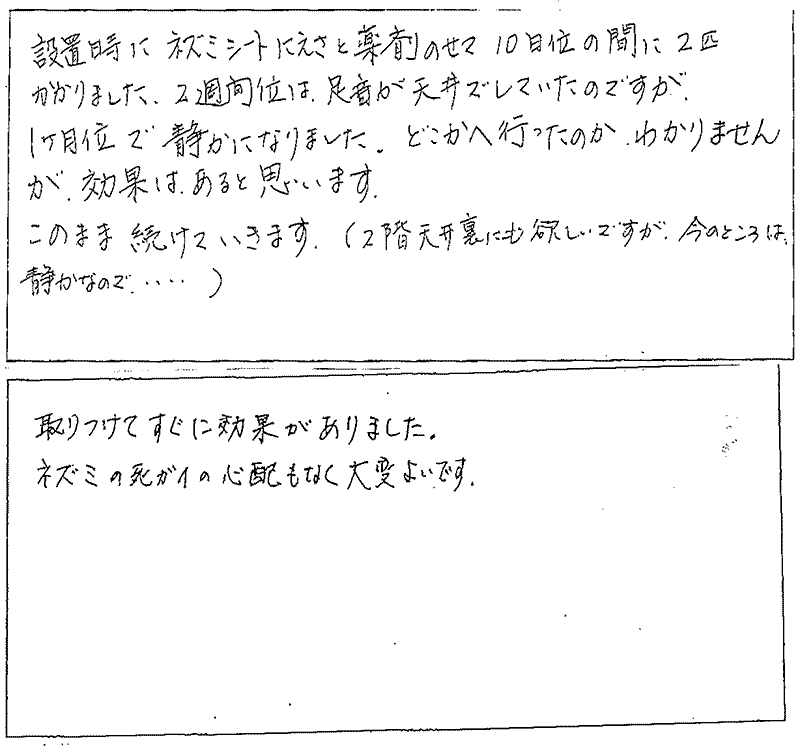 設置時に ネズミシートにえさと薬剤のせて 10日位の間に 2匹
かかりました、2週間位は、足音が天井でしていたのですが、
1ヶ月位で静かになりました。どこかへ行ったのか、わかりません
が、効果は、あると思います。
このまま続けていきます。(2階天井裏にも欲しいですが、今のところは、
静かなので、‥‥)
取りつけてすぐに効果がありました。
ネズミの死ガイの心配もなく大変よいです。